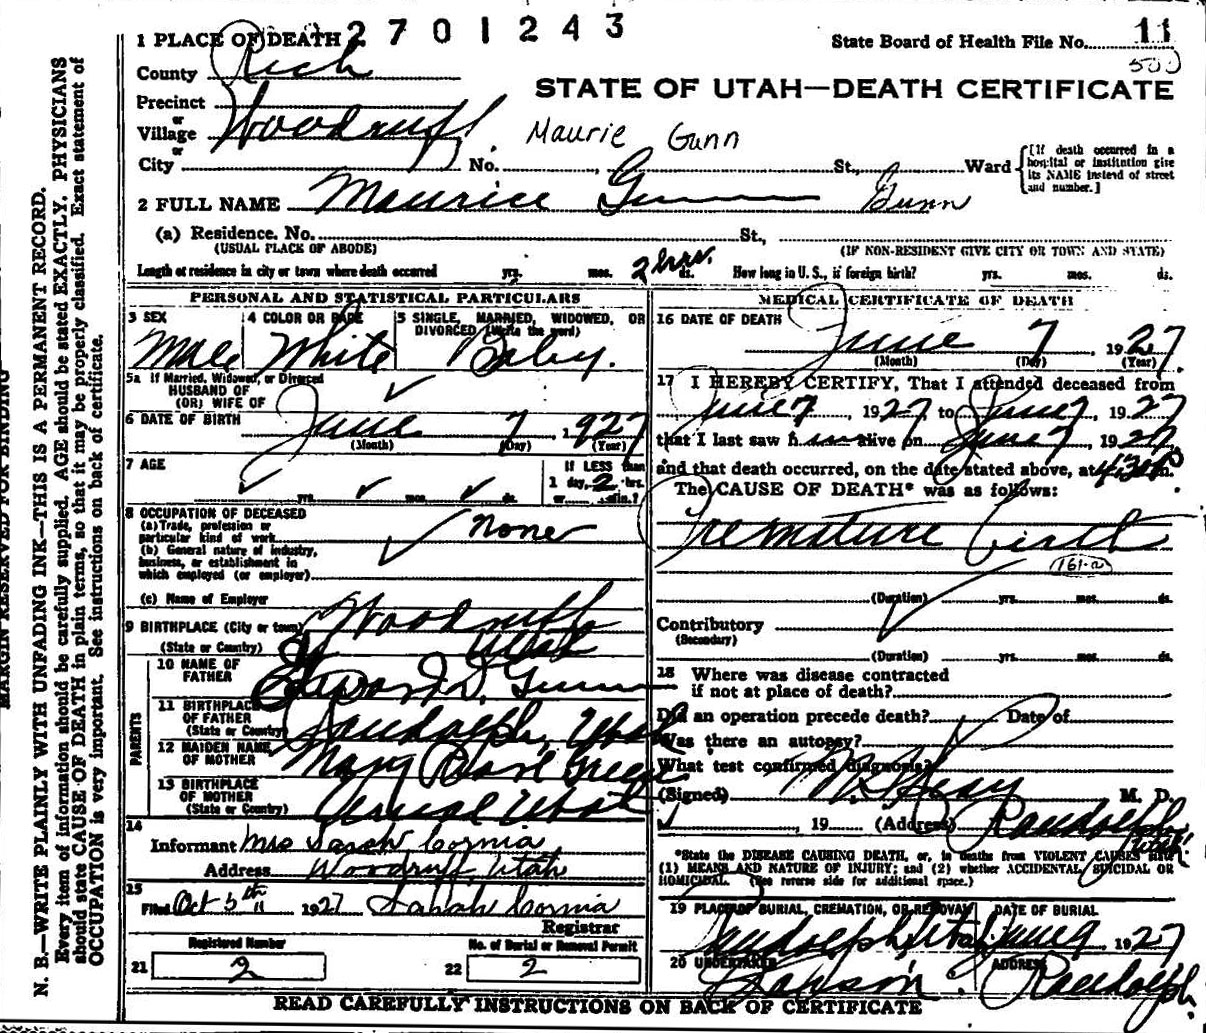 2701243
1 PLACE OF DEATH
State Board of Health File No. 11
500
County Rich
STATE OF UTAH—DEATH CERTIFICATE
Precinct
or
Village Woodruff
Maurie Gunn
or
City No. St., Ward
[If death occurred in a hospital or institution give its NAME instead of street and number.]
2 FULL NAME Maurice Gunn Gunn
(a) Residence. No. St.,
(USUAL PLACE OF ABODE) (IF NON-RESIDENT GIVE CITY OR TOWN AND STATE)
Length of residence in city or town where death occurred yrs. mos. 2 hrs. ds. How long in U. S., if foreign birth? yrs. mos. ds.
PERSONAL AND STATISTICAL PARTICULARS
3 SEX 4 COLOR OR RACE 5 SINGLE, MARRIED, WIDOWED, OR DIVORCED (Write the word)
Male White Baby.
5a If Married, Widowed, or Divorced
HUSBAND OF
(OR) WIFE OF
6 DATE OF BIRTH June 7, 1927
(Month) (Day) (Year)
7 AGE
yrs. mos. ds.
If LESS than
1 day, 2 hrs.
or min.?
8 OCCUPATION OF DECEASED
(a) Trade, profession or
particular kind of work None
(b) General nature of industry,
business, or establishment in
which employed (or employer)
(c) Name of Employer
9 BIRTHPLACE (City or town) Woodruff
(State or Country) Utah
PARENTS
10 NAME OF
FATHER Edward D. Gunn
11 BIRTHPLACE
OF FATHER
(State or Country) Randolph, Utah
12 MAIDEN NAME
OF MOTHER Mary Greene
13 BIRTHPLACE
OF MOTHER
(State or Country) Utah
14
Informant Mrs Sarah Cornia
Address Woodruff, Utah
15
Filed Oct 5th 1927 Sarah Cornia
Registrar
Registered Number No. of Burial or Removal Permit
21 2 22 2
MEDICAL CERTIFICATE OF DEATH
16 DATE OF DEATH
June 7, 1927.
(Month) (Day) (Year)
17 I HEREBY CERTIFY, That I attended deceased from
June 7, 1927 to June 7, 1927
that I last saw him alive on June 7, 1927
and that death occurred, on the date stated above, at 4:30 P m.
The CAUSE OF DEATH* was as follows:
Premature birth
161-a
(Duration) yrs. mos. ds.
Contributory
(Secondary)
(Duration) yrs. mos. ds.
18 Where was disease contracted
if not at place of death?
Did an operation precede death? Date of
Was there an autopsy?
What test confirmed diagnosis?
(Signed) M. D.
, 19 (Address) Randolph, Utah
*State the DISEASE CAUSING DEATH, or, in deaths from VIOLENT CAUSES state
(1) MEANS AND NATURE OF INJURY; and (2) whether ACCIDENTAL, SUICIDAL OR
HOMICIDAL. (See reverse side for additional space.)
19 PLACE OF BURIAL, CREMATION, OR REMOVAL DATE OF BURIAL
Randolph, Utah June 9, 1927
20 UNDERTAKER ADDRESS
Lawson. Randolph.
READ CAREFULLY INSTRUCTIONS ON BACK OF CERTIFICATE
MARGIN RESERVED FOR BINDING
N. B.—WRITE PLAINLY WITH UNFADING INK—THIS IS A PERMANENT RECORD.
Every item of information should be carefully supplied. AGE should be stated EXACTLY. PHYSICIANS
should state CAUSE OF DEATH in plain terms, so that it may be properly classified. Exact statement of
OCCUPATION is very important. See instructions on back of certificate.